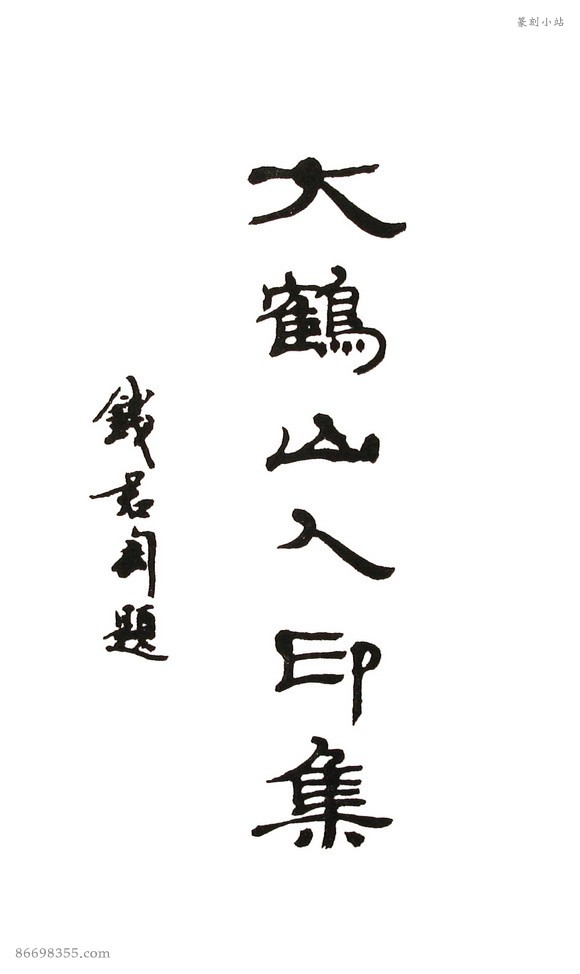 篆刻小站
大鶴山人印集
錢君匋題
86698355.com